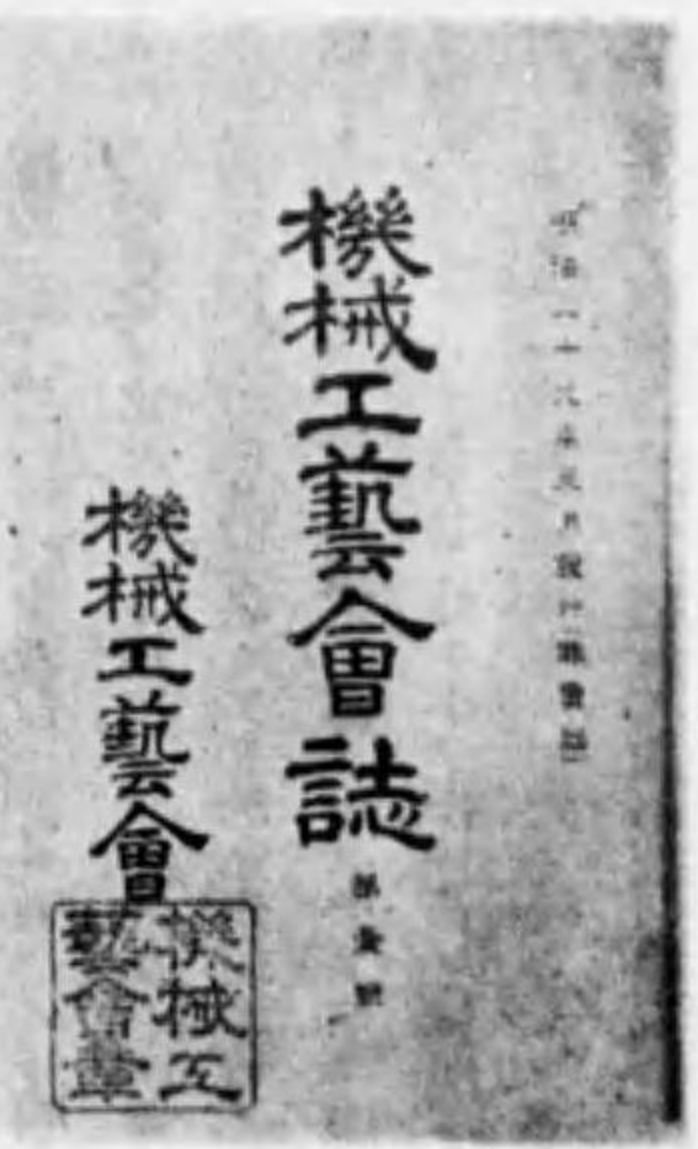 明治十年月發行
機械工藝會誌
第壹號
機械工藝會
機械工
藝會章